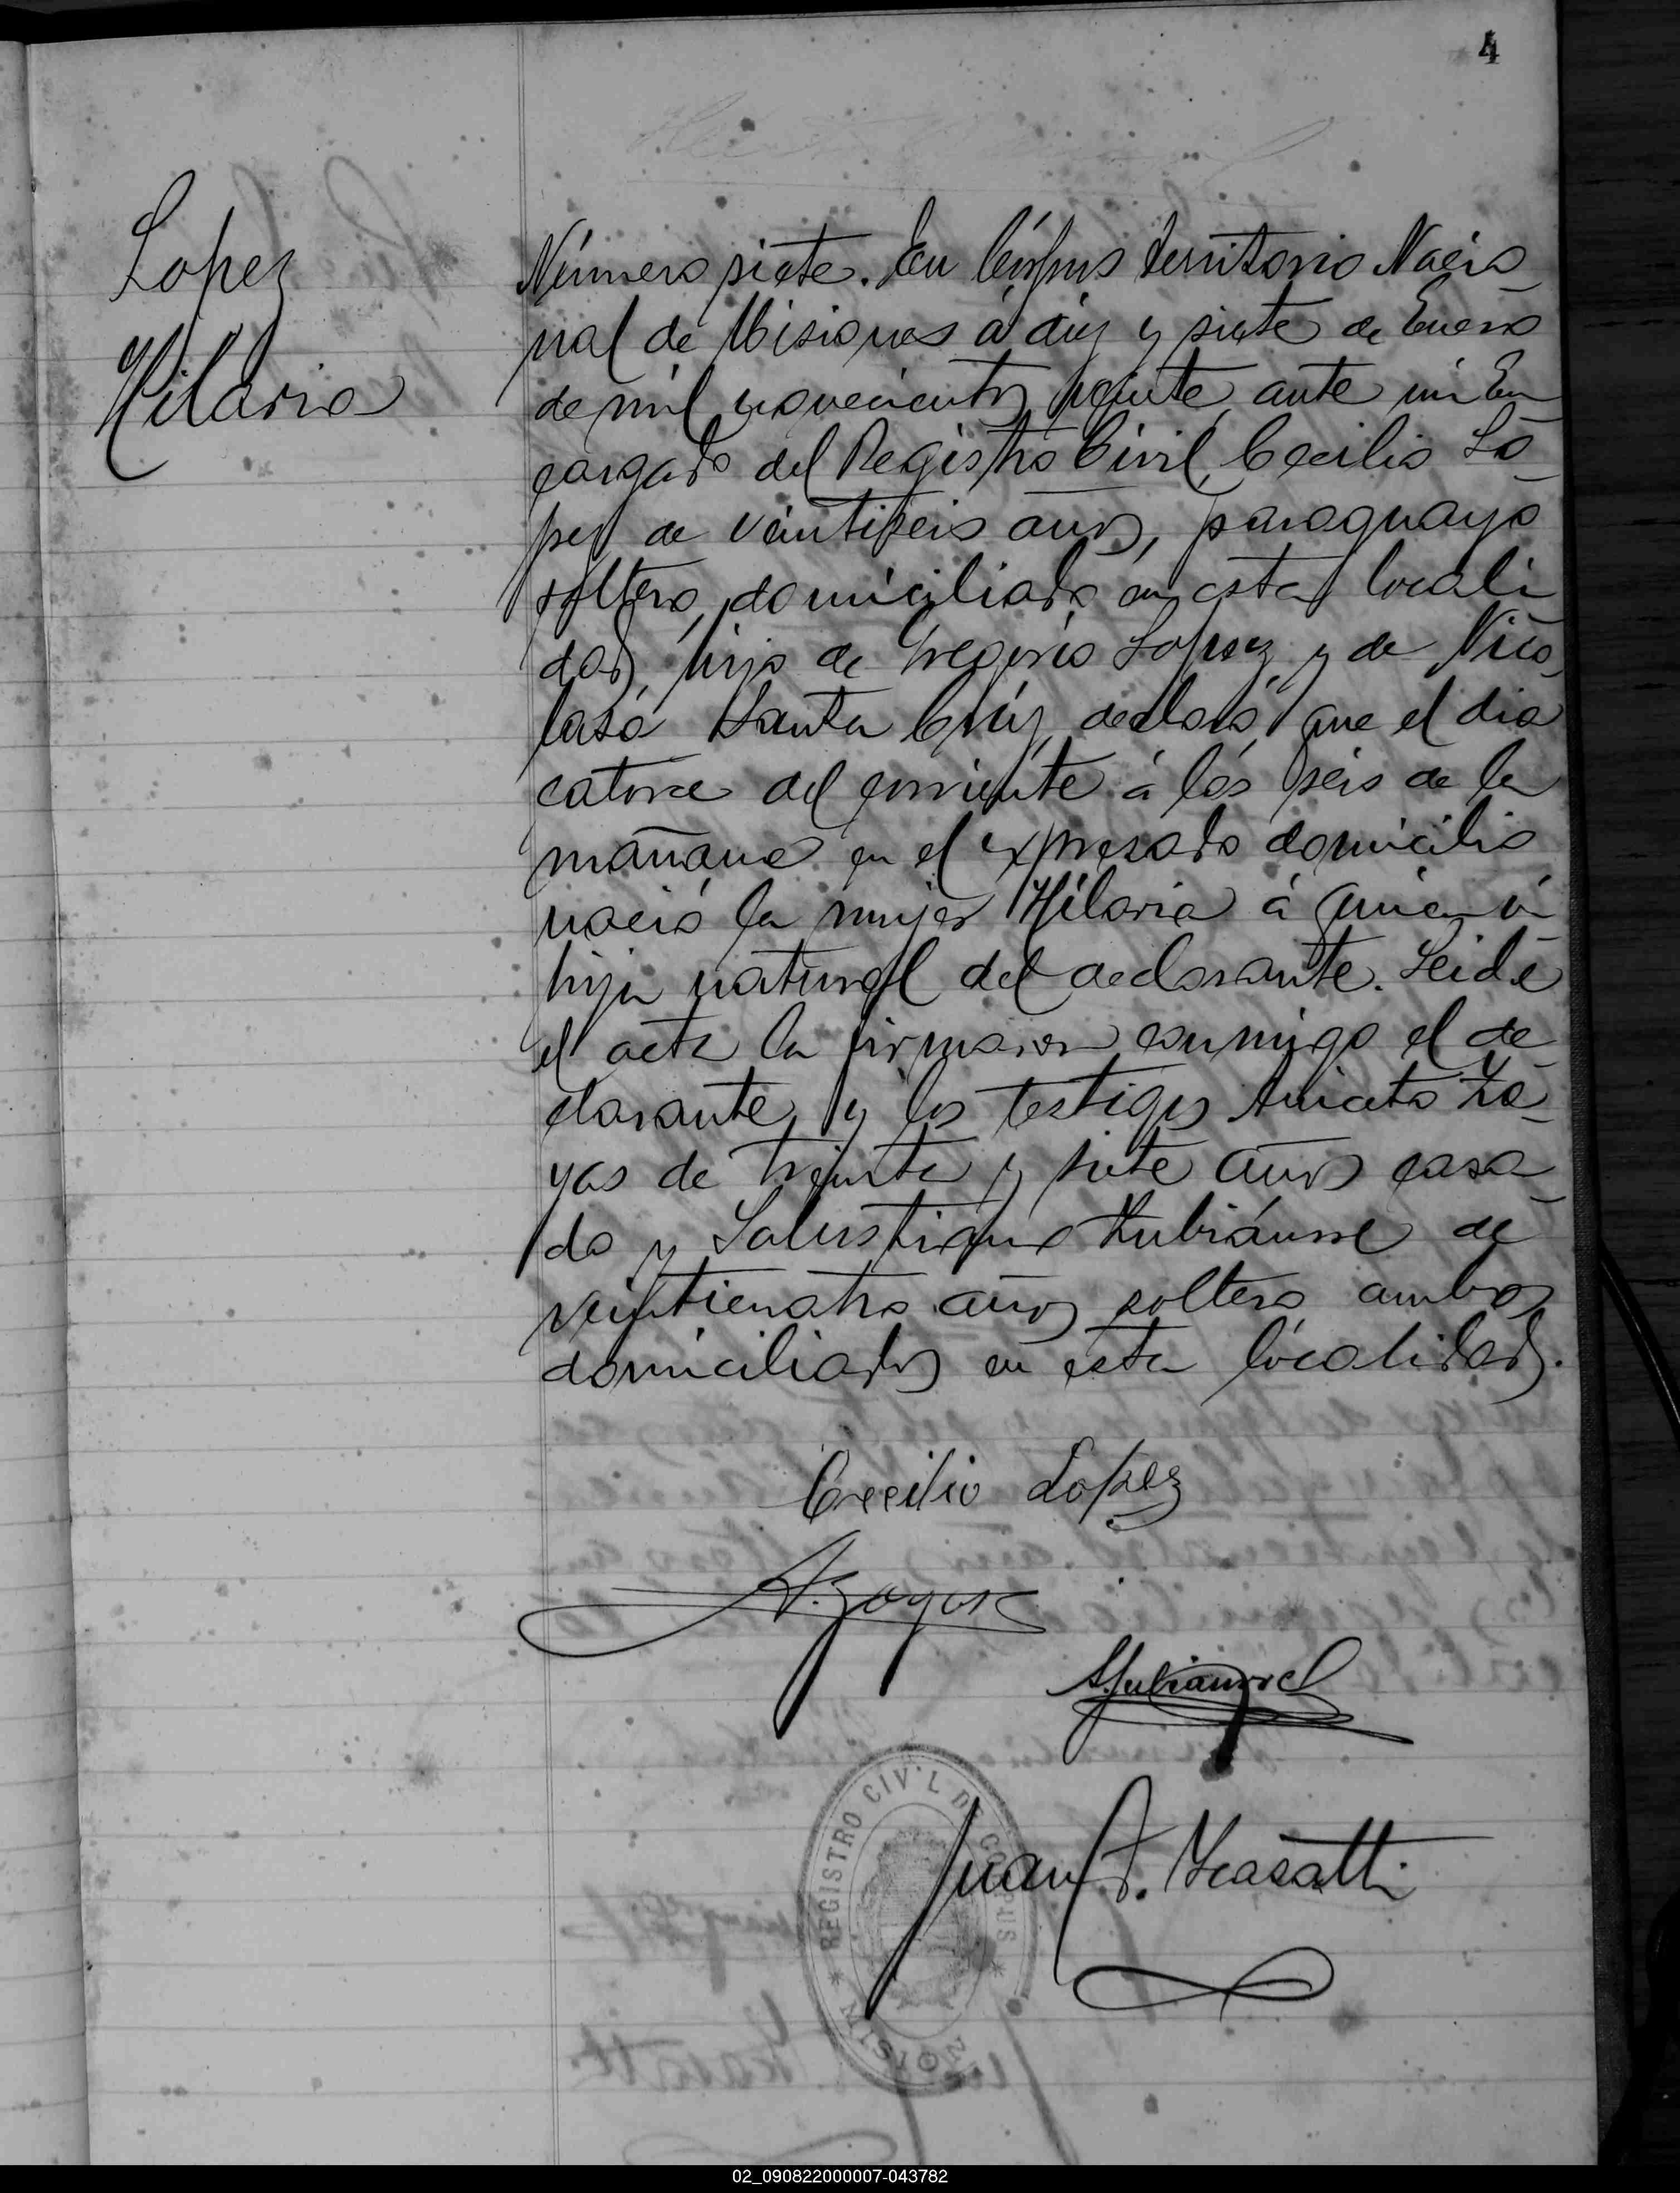 4
Lopez
Hilaria
Número siete. En Córpus Territorio Nacio-
nal de Misiones á diez y siete de Enero
de mil novecientos veinte, ante mi En-
cargado del Registro Civil, Cecilio Lo-
pez de veintiseis años, paraguayo
soltero, domiciliado en esta locali-
dad, hijo de Gregorio Lopez y de Nico-
lasa Santa Cruz, declaró, que el dia
catorce del corriente á las seis de la
mañana en el expresado domicilio
nació la mujer Hilaria á quien ví
hija natural del declarante. Leida
el acta la firmaron conmigo el de-
clarante, y los testigos Aniceto Za-
yas de treinta y siete años casa-
do y Salustiano de
veinticuatro años soltero ambos
domiciliados en esta localidad.
Cecilio Lopez
A. Zayas
Juan
REGISTRO CIVIL DE CORPUS
MISIONES
02_090822000007-043782